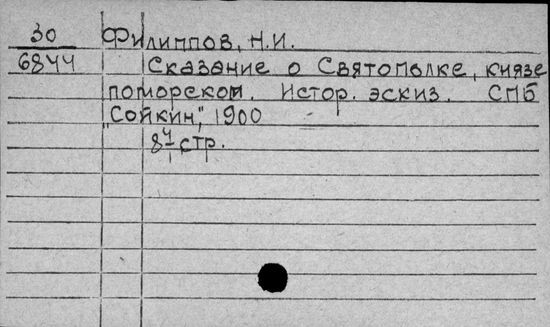 30 Филиппов, Н.И.
6844 Сказание о Святополке, князе
поморском. Истор. эскиз. СПБ
"Сойкин", 1900
84 стр.